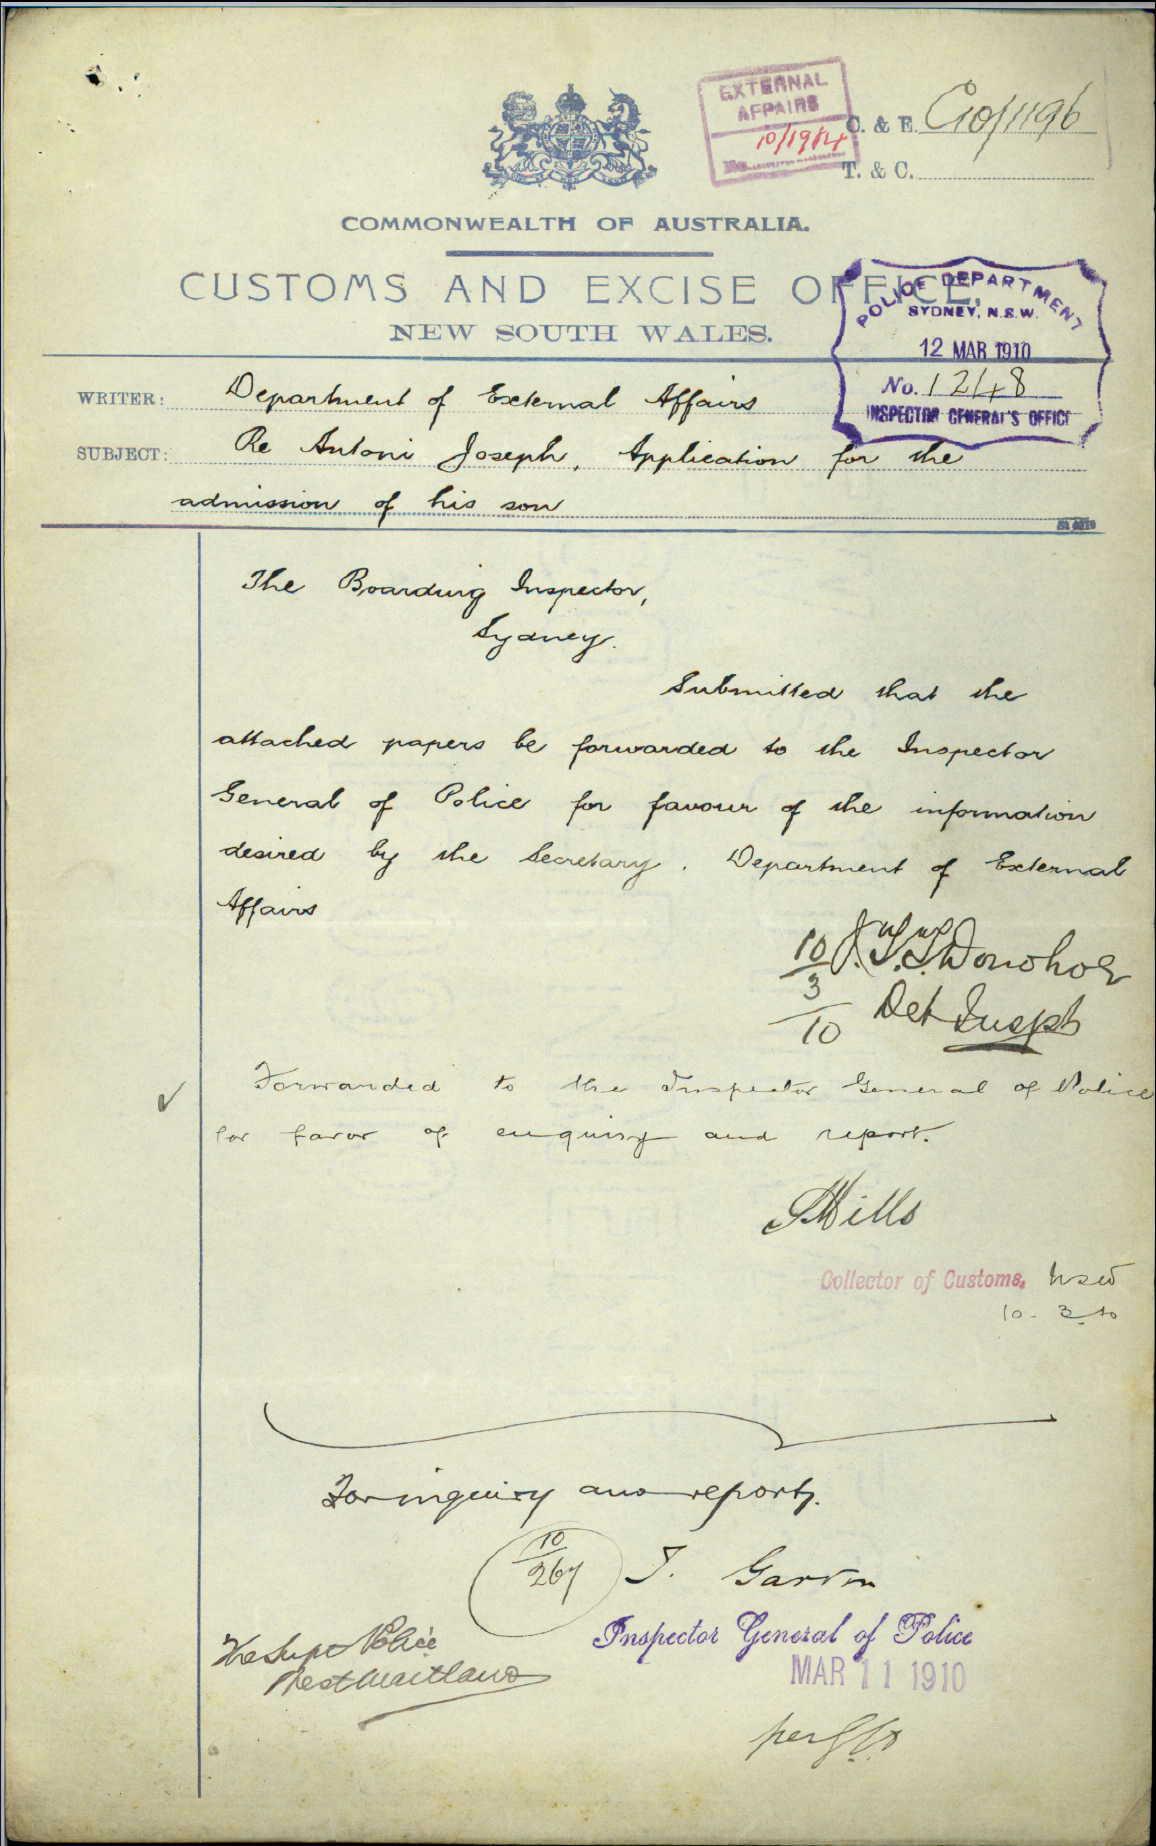 EXTERNAL
AFFAIRS
No. 10/1984
C. & E. C10/1196
T. & C.
COMMONWEALTH OF AUSTRALIA.
CUSTOMS AND EXCISE OFFICE,
NEW SOUTH WALES.
POLICE DEPARTMENT
SYDNEY, N.S.W.
12 MAR 1910
No. 1248
INSPECTOR GENERAL'S OFFICE
WRITER: Department of External Affairs
SUBJECT: Re Antoni Joseph, Application for the
admission of his son
The Boarding Inspector,
Sydney.
Submitted that the
attached papers be forwarded to the Inspector
General of Police for favour of the information
desired by the Secretary. Department of External
Affairs
10/3/10 J. T. T. Donohoe
Det Inspr
Forwarded to the Inspector General of Police
for favor of enquiry and report.
Mills
Collector of Customs, NSW
10.3.10
For inquiry and report.
10/267 T. Garvin
Inspector General of Police
MAR 11 1910
The Supt Police
West Maitland
per